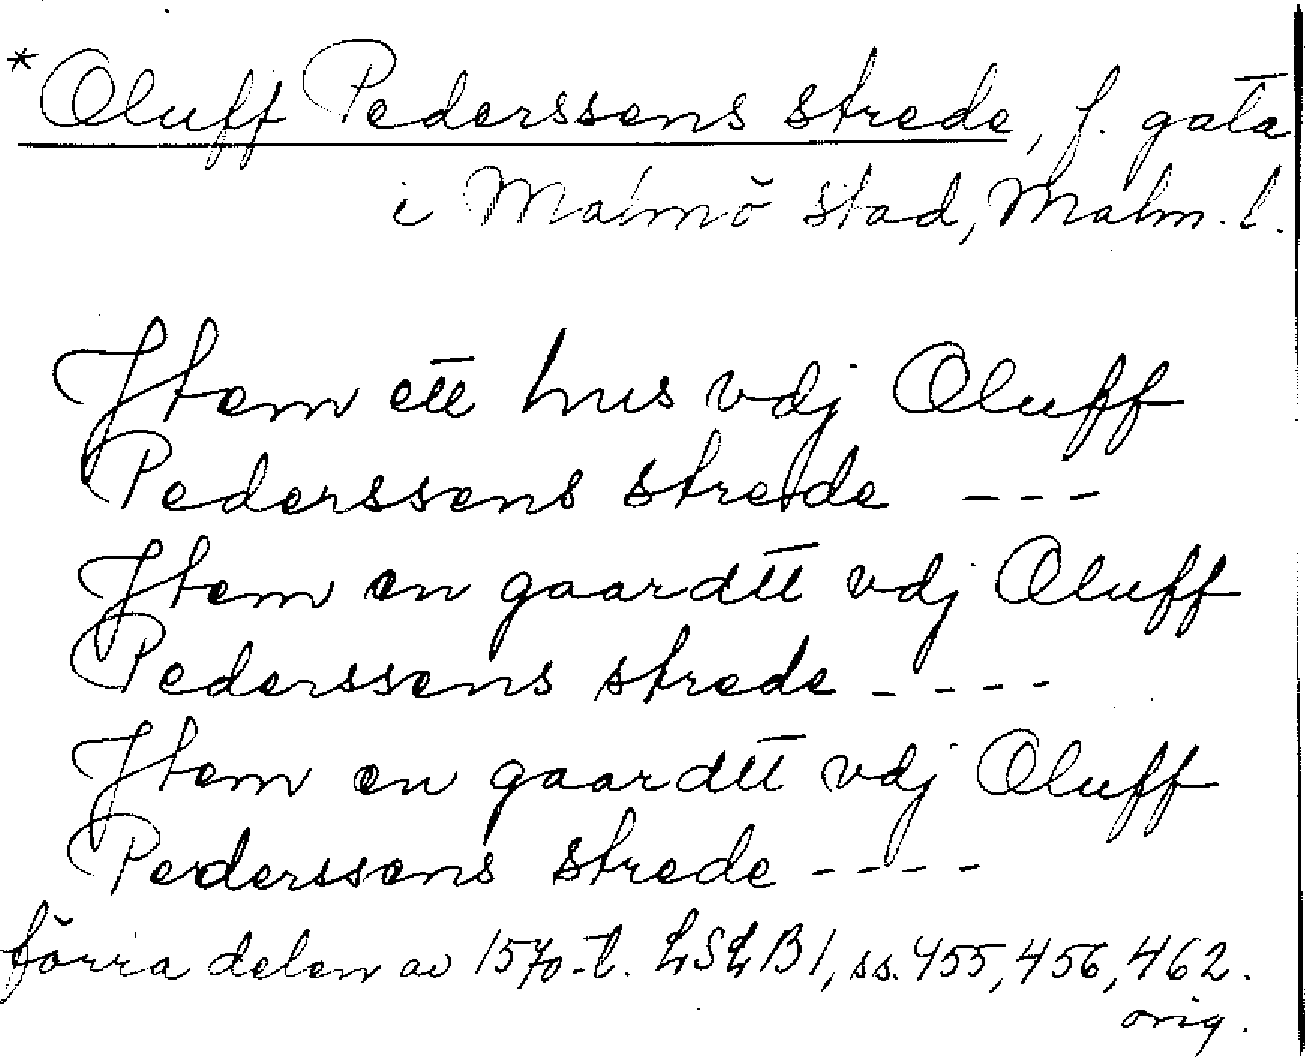 *Oluff Pederssens strede, f. gata
i Malmö stad, Malm. l.
Jtem ett hus vdj Oluff
Pederssens strede ---
Jtem en gaardtt vdj Oluff
Pederssens strede ----
Jtem en gaardtt vdj Oluff
Pederssens strede ----
förra delen av 1570-t. LSLB1, ss. 455, 456, 462.
orig.